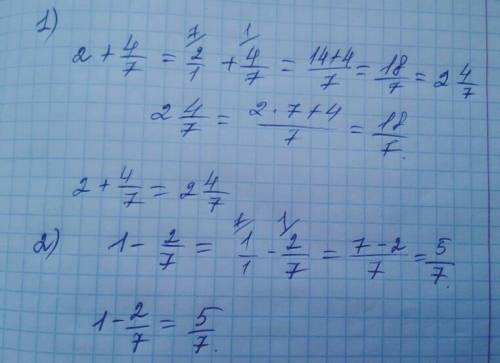 1)
2 + 4/7 = 2/1 ⁷⁄ + 4/7 ¹⁄ = 14+4/7 = 18/7 = 2 4/7
2 4/7 = 2·7+4/7 = 18/7.
2 + 4/7 = 2 4/7
2) 1 - 2/7 = 1/1 ⁷⁄ - 2/7 ¹⁄ = 7-2/7 = 5/7.
1 - 2/7 = 5/7.